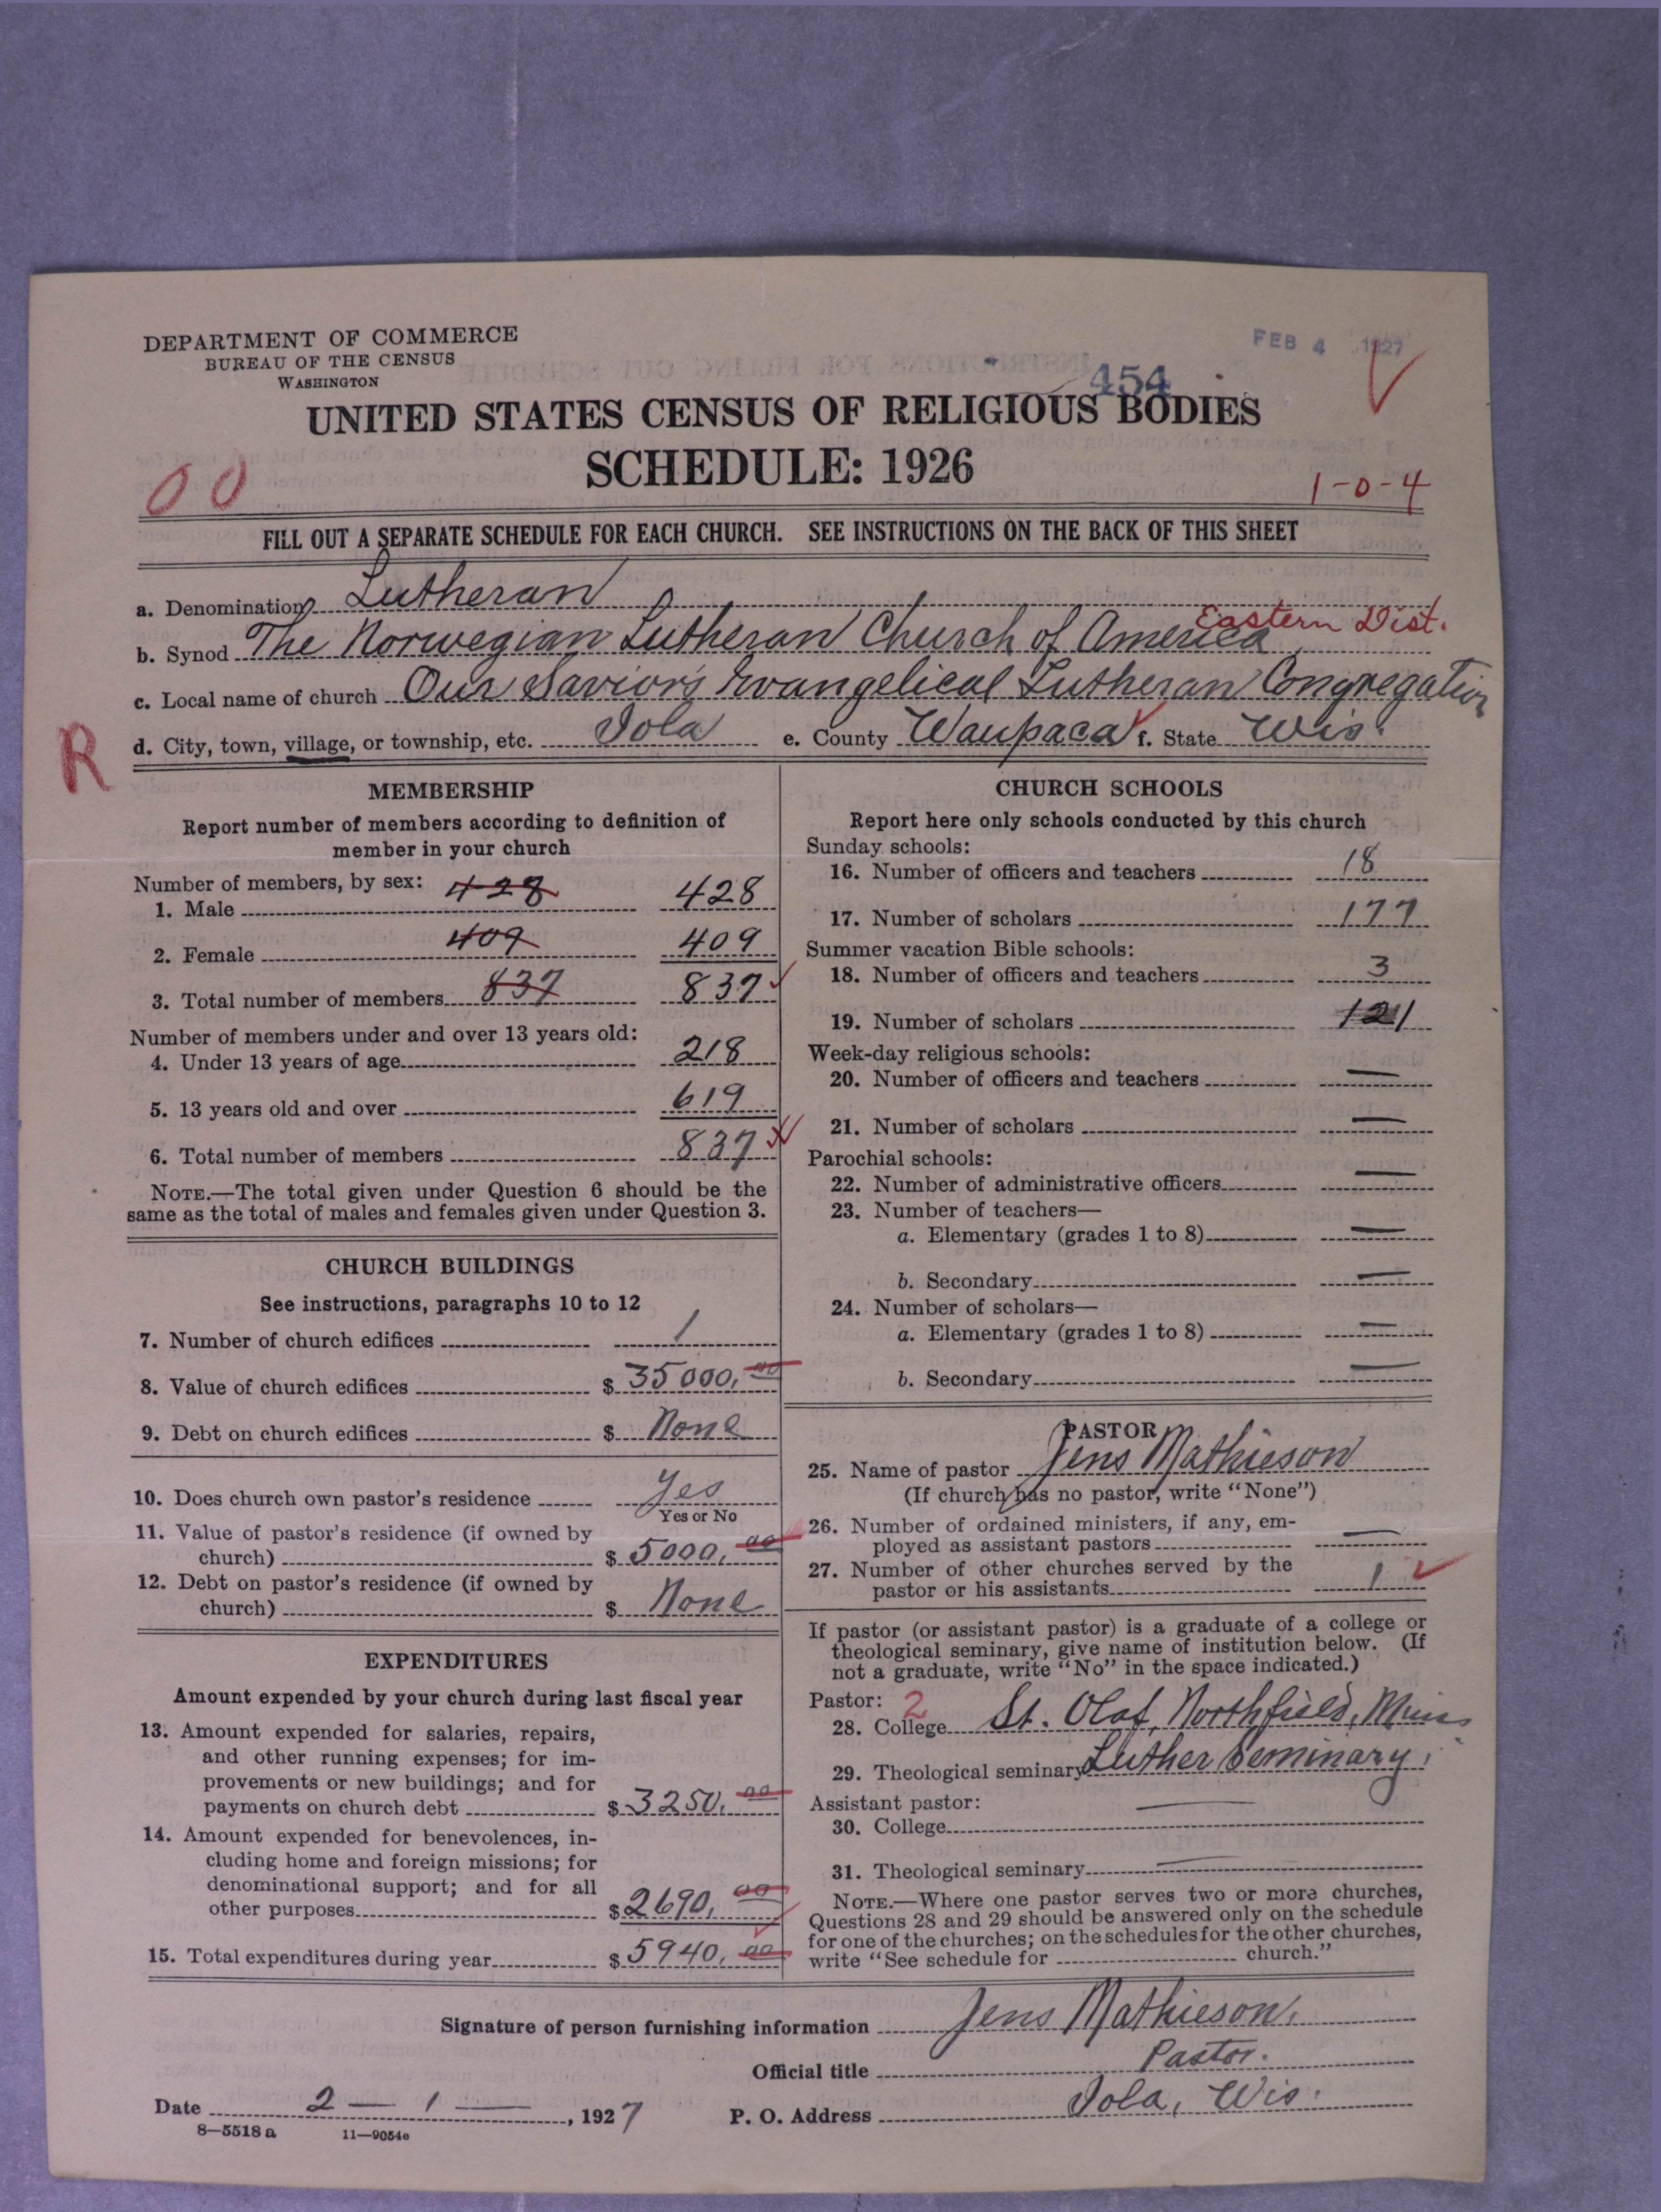 DEPARTMENT OF COMMERCE
BUREAU OF THE CENSUS
WASHINGTON
FEB 4 1927
454
UNITED STATES CENSUS OF RELIGIOUS BODIES
SCHEDULE: 1926
00
1-0-4
FILL OUT A SEPARATE SCHEDULE FOR EACH CHURCH. SEE INSTRUCTIONS ON THE BACK OF THIS SHEET
a. Denomination Lutheran
Eastern Dist.
b. Synod The Norwegian Lutheran Church of America
c. Local name of church Our Savior's Evangelical Lutheran Congregation
R
d. City, town, village, or township, etc. Iola e. County Waupaca f. State Wis.
MEMBERSHIP
Report number of members according to definition of
member in your church
Number of members, by sex:
1. Male 428 428
2. Female 409 409
3. Total number of members 837 837
Number of members under and over 13 years old:
4. Under 13 years of age 218
5. 13 years old and over 619
6. Total number of members 837
NOTE.—The total given under Question 6 should be the
same as the total of males and females given under Question 3.
CHURCH BUILDINGS
See instructions, paragraphs 10 to 12
7. Number of church edifices 1
8. Value of church edifices $ 35000.00
9. Debt on church edifices $ None
10. Does church own pastor's residence Yes
Yes or No
11. Value of pastor's residence (if owned by
church) $ 5000.00
12. Debt on pastor's residence (if owned by
church) $ None
EXPENDITURES
Amount expended by your church during last fiscal year
13. Amount expended for salaries, repairs,
and other running expenses; for im-
provements or new buildings; and for
payments on church debt $ 3250.00
14. Amount expended for benevolences, in-
cluding home and foreign missions; for
denominational support; and for all
other purposes $ 2690.00
15. Total expenditures during year $ 5940.00
CHURCH SCHOOLS
Report here only schools conducted by this church
Sunday schools:
16. Number of officers and teachers 18
17. Number of scholars 177
Summer vacation Bible schools:
18. Number of officers and teachers 3
19. Number of scholars 121
Week-day religious schools:
20. Number of officers and teachers —
21. Number of scholars —
Parochial schools:
22. Number of administrative officers —
23. Number of teachers—
a. Elementary (grades 1 to 8) —
b. Secondary —
24. Number of scholars—
a. Elementary (grades 1 to 8) —
b. Secondary —
PASTOR
25. Name of pastor Jens Mathieson
(If church has no pastor, write "None")
26. Number of ordained ministers, if any, em-
ployed as assistant pastors —
27. Number of other churches served by the
pastor or his assistants 1
If pastor (or assistant pastor) is a graduate of a college or
theological seminary, give name of institution below. (If
not a graduate, write "No" in the space indicated.)
Pastor: 2
28. College St. Olaf, Northfield, Minn
29. Theological seminary Luther Seminary.
Assistant pastor:
30. College —
31. Theological seminary —
NOTE.—Where one pastor serves two or more churches,
Questions 28 and 29 should be answered only on the schedule
for one of the churches; on the schedules for the other churches,
write "See schedule for church."
Signature of person furnishing information Jens Mathieson.
Official title Pastor.
Date 2 — 1 —, 1927 P. O. Address Iola, Wis.
8—5518 a 11—9054e